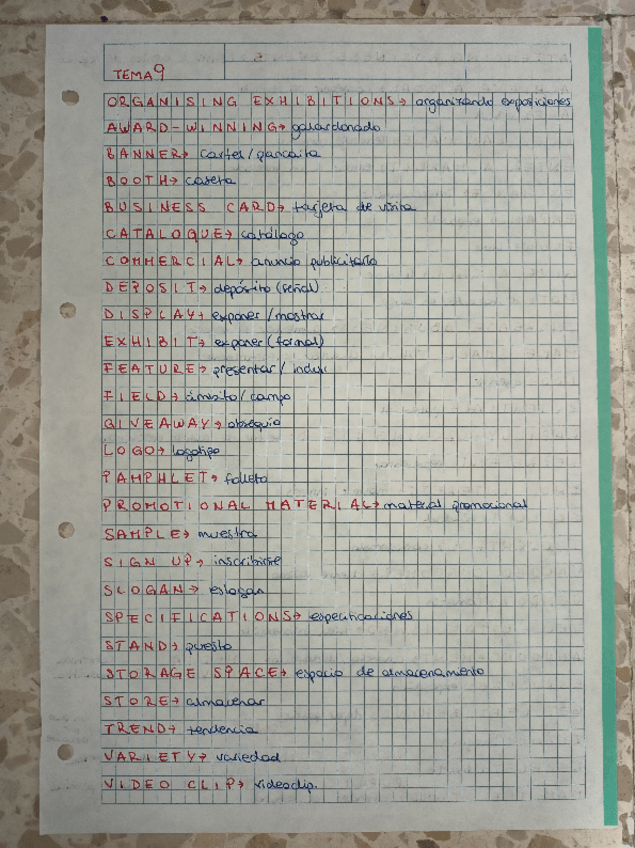 TEMA 9
ORGANISING EXHIBITIONS → organizando exposiciones
AWARD-WINNING → galardonado
BANNER → cartel / pancarta
BOOTH → caseta
BUSINESS CARD → tarjeta de visita
CATALOGUE → catálogo
COMMERCIAL → anuncio publicitario
DEPOSIT → depósito (señal)
DISPLAY → exponer / mostrar
EXHIBIT → exponer (formal)
FEATURE → presentar / incluir
FIELD → ámbito / campo
GIVEAWAY → obsequio
LOGO → logotipo
PAMPHLET → folleto
PROMOTIONAL MATERIAL → material promocional
SAMPLE → muestra
SIGN UP → inscribirse
SLOGAN → eslogan
SPECIFICATIONS → especificaciones
STAND → puesto
STORAGE SPACE → espacio de almacenamiento
STORE → almacenar
TREND → tendencia
VARIETY → variedad
VIDEO CLIP → videoclip.